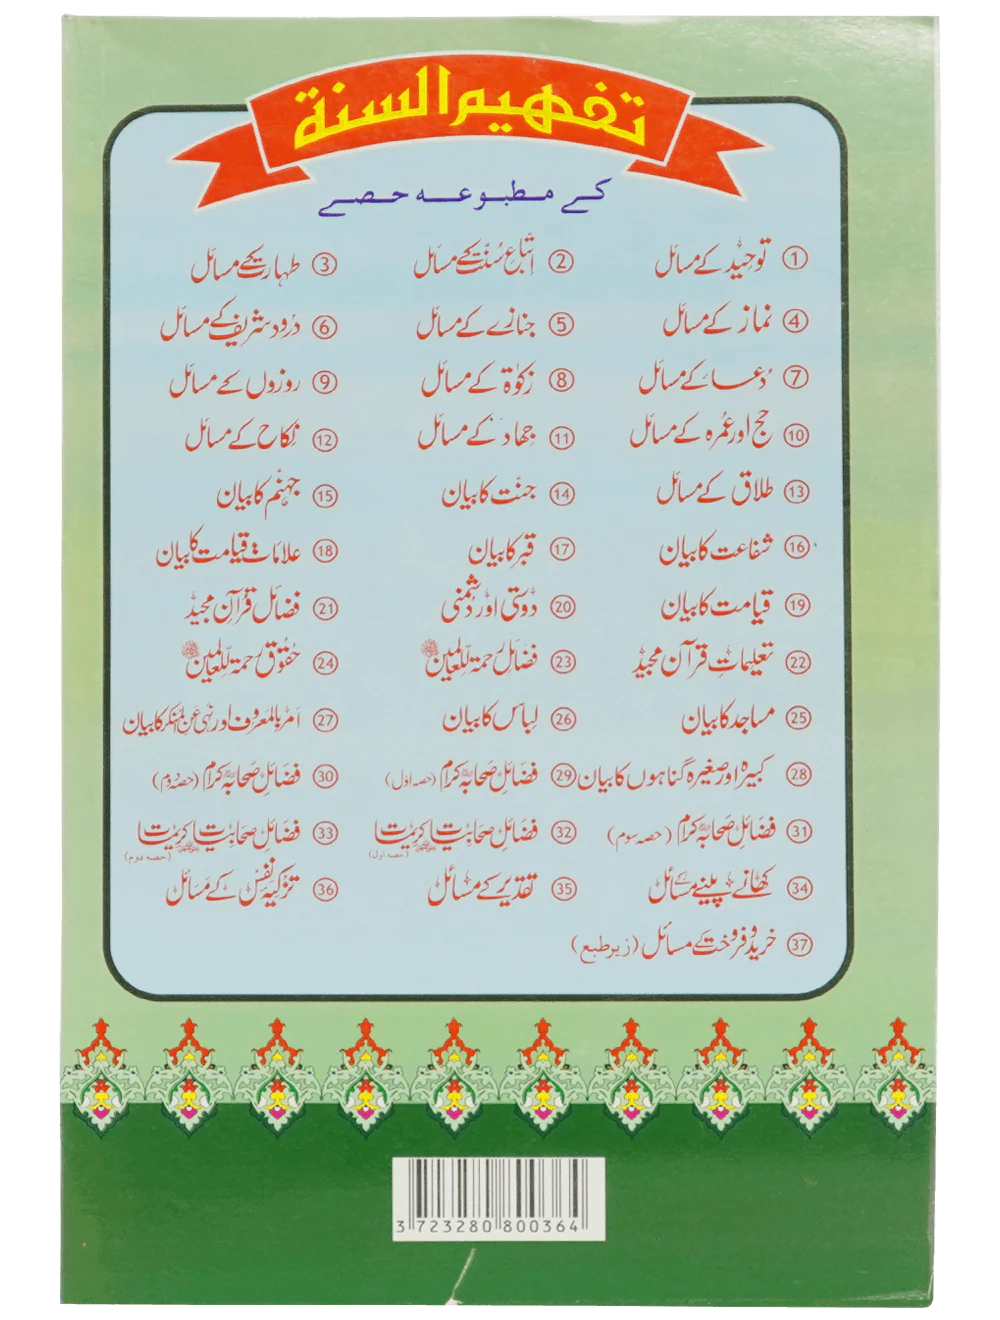 تفہیم السنة
کے مطبوعہ حصے
① توحید کے مسائل ② اتباع سُنت کے مسائل ③ طہارت کے مسائل
④ نماز کے مسائل ⑤ جنازے کے مسائل ⑥ درود شریف کے مسائل
⑦ دُعا کے مسائل ⑧ زکوٰة کے مسائل ⑨ روزوں کے مسائل
⑩ حج اور عمرہ کے مسائل ⑪ جهاد کے مسائل ⑫ نکاح کے مسائل
⑬ طلاق کے مسائل ⑭ جنت کا بیان ⑮ جہنم کا بیان
⑯ شفاعت کا بیان ⑰ قبر کا بیان ⑱ علاماتِ قیامت کا بیان
⑲ قیامت کا بیان ⑳ دوستی اور دشمنی ㉑ فضائل قرآن مجید
㉒ تعلیماتِ قرآن مجید ㉓ فضائل رحمة للعالمین ﷺ ㉔ حقوق رحمة للعالمین ﷺ
㉕ مساجد کا بیان ㉖ لباس کا بیان ㉗ امر بالمعروف اور نہی عن المنکر کا بیان
㉘ کبیرہ اور صغیرہ گناہوں کا بیان ㉙ فضائل صحابہ کرام (حصہ اول) ㉚ فضائل صحابہ کرام (حصہ دوم)
㉛ فضائل صحابہ کرام (حصہ سوم) ㉜ فضائل صحابیات کریمات (حصہ اول) ㉝ فضائل صحابیات کریمات (حصہ دوم)
㉞ کھانے پینے کے مسائل ㉟ تقدیر کے مسائل ㊱ تزکیہ نفس کے مسائل
㊲ خرید و فروخت کے مسائل (زیر طبع)
3 723280 800364